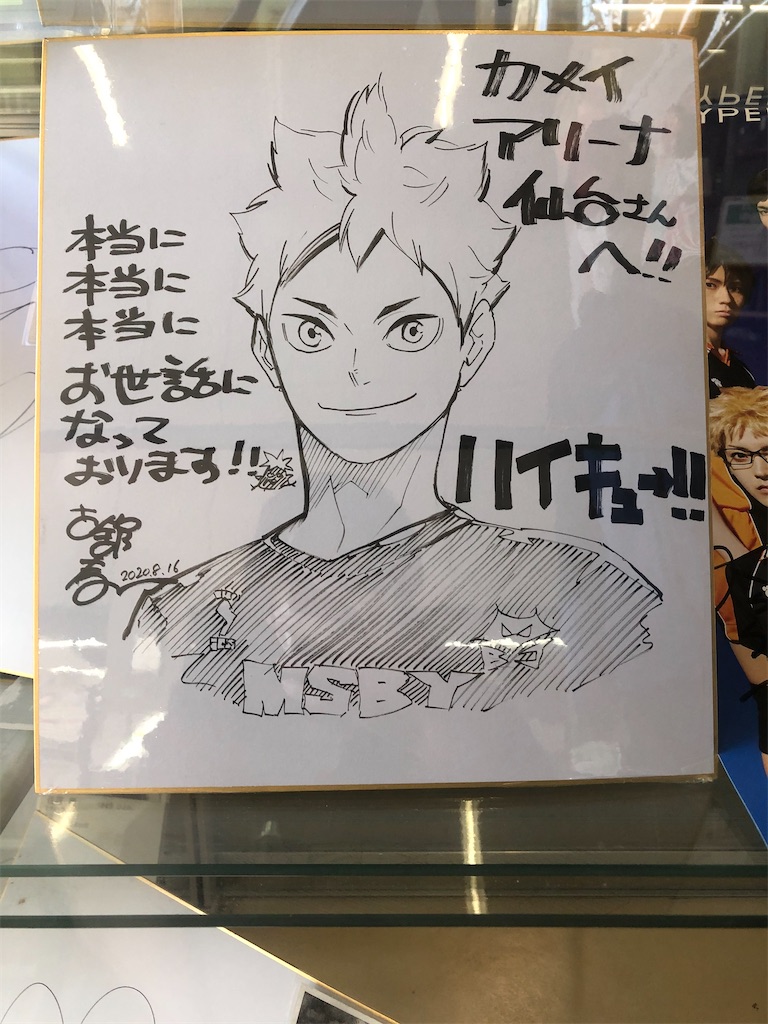 カメイ
アリーナ
仙台さん
へ!!
本当に
本当に
本当に
お世話に
なって
おります!!
ハイキュー!!
古舘
春一
2020.8.16
MSBY